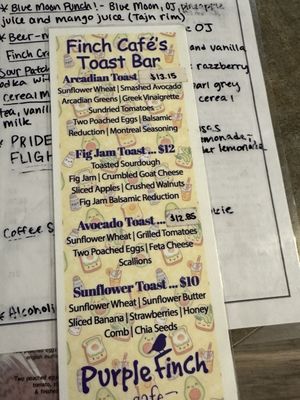 * Blue Moon Punch! - Blue Moon, OJ, pineapple
juice and mango juice (Tajin rim)
* Beer-m
OJ
Finch Cr
and vanilla
Sour Patch
razzberry
odka wi
cereal m
earl grey
cereal!
tea, vanill
milk
* PRIDE
FLIGH
lemonade,
lemonade
Coffee S
* Alcoholi
Finch Café's
Toast Bar
Arcadian Toast $13.15
Sunflower Wheat | Smashed Avocado
Arcadian Greens | Greek Vinaigrette
Sundried Tomatoes
Two Poached Eggs | Balsamic
Reduction | Montreal Seasoning
Fig Jam Toast ... $12
Toasted Sourdough
Fig Jam | Crumbled Goat Cheese
Sliced Apples | Crushed Walnuts
Fig Jam Balsamic Reduction
Avocado Toast ... $12.85
Sunflower Wheat | Grilled Tomatoes
Two Poached Eggs | Feta Cheese
Scallions
Sunflower Toast ... $10
Sunflower Wheat | Sunflower Butter
Sliced Banana | Strawberries | Honey
Comb | Chia Seeds
Purple Finch
cafe